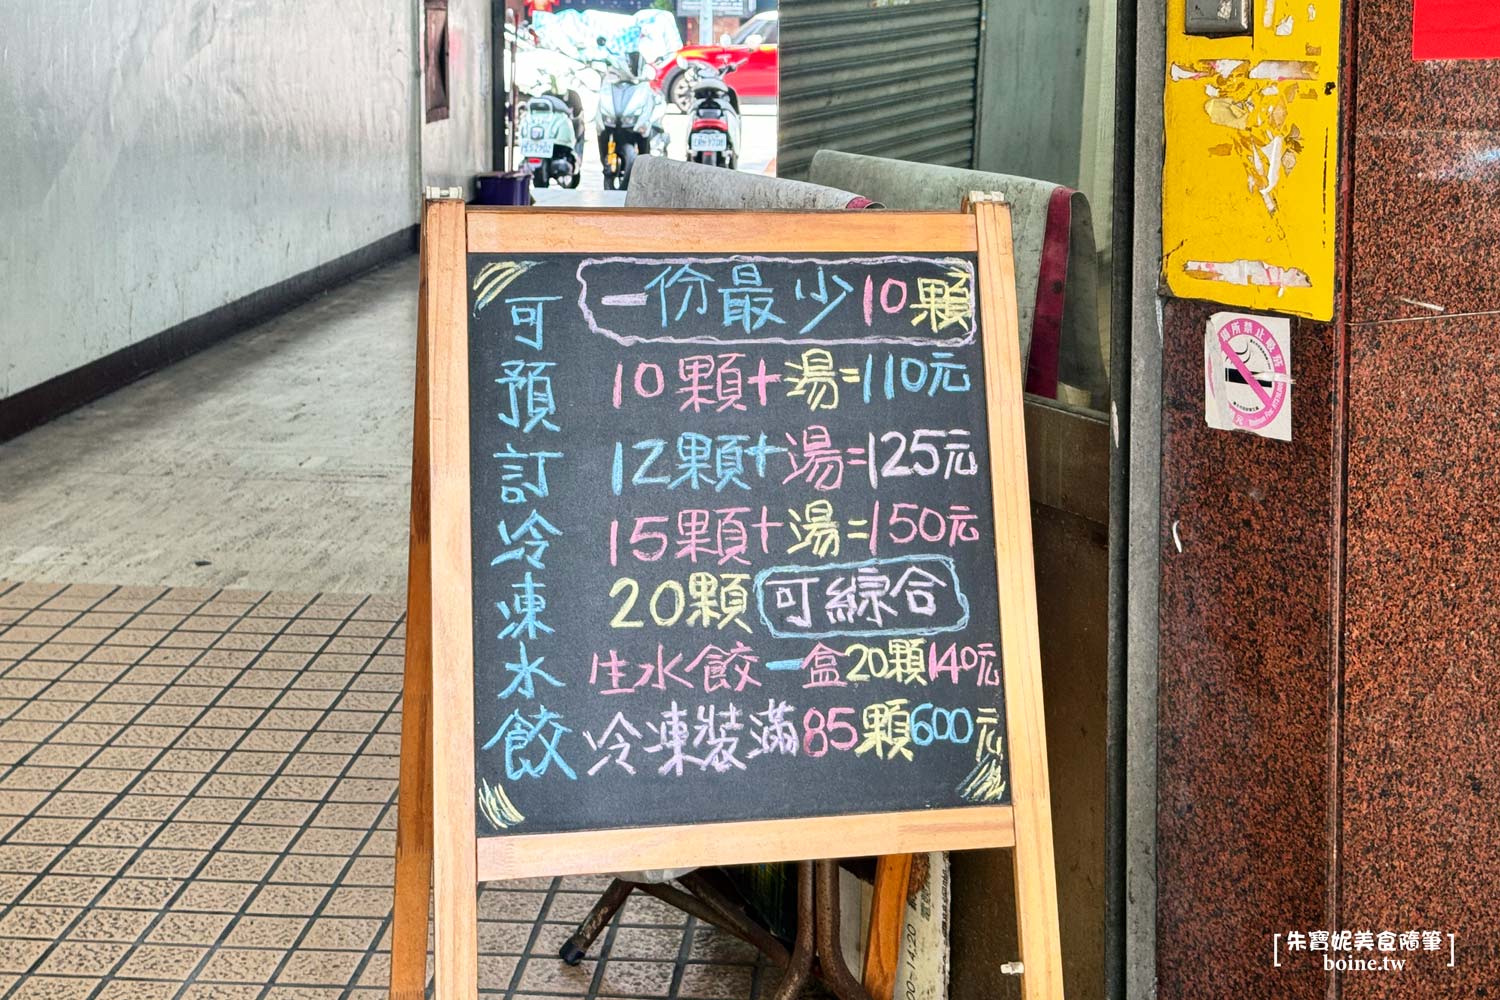 可預訂冷凍水餃
一份最少10顆
10顆+湯=110元
12顆+湯=125元
15顆+湯=150元
20顆 可綜合
生水餃一盒20顆140元
冷凍裝滿85顆600元
00-14:20
[朱寶妮美食隨筆]
boine.tw